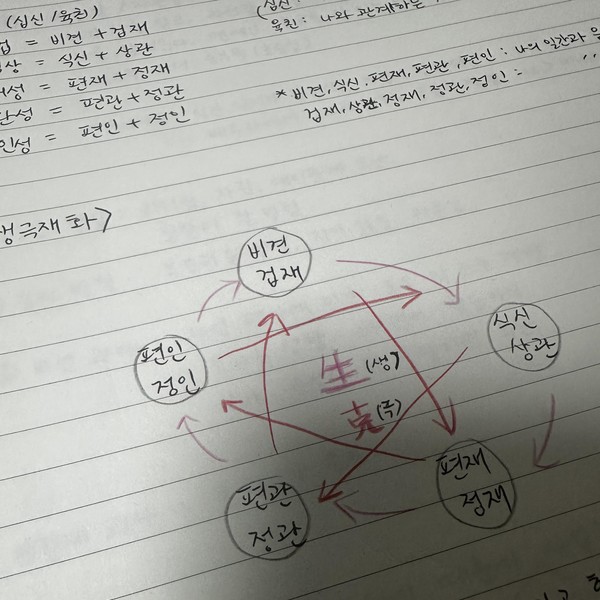 (십신/육친)
= 비견 + 겁재
= 식신 + 상관
= 편재 + 정재
= 편관 + 정관
인성 = 편인 + 정인
(십신:
육친: 나와 관계하는
* 비견, 식신, 편재, 편관, 편인: 나의 일간과 음
겁재, 상관, 정재, 정관, 정인: "
생극재화>
비견
겁재
식신
상관
편인
정인
生 (생)
克 (극)
편재
정재
편관
정관